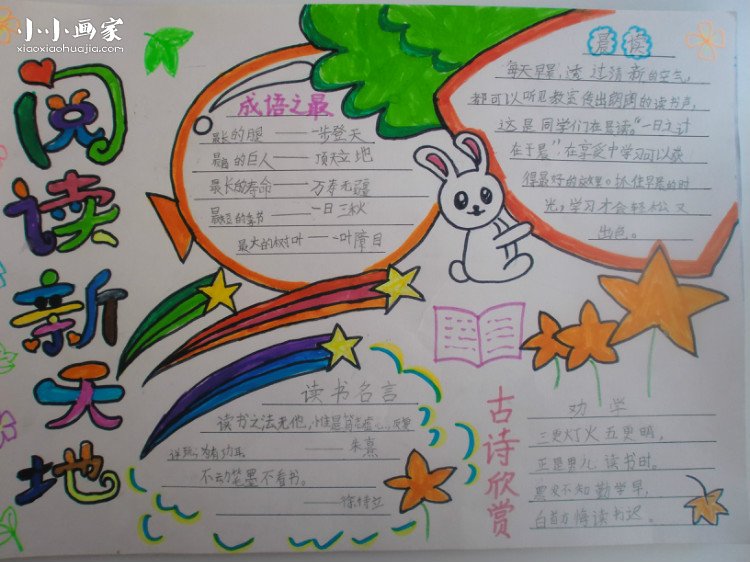 小小画家
xiaoxiaohuajia.com
阅读新天地
成语之最
最长的腿——一步登天
最高的巨人——顶天立地
最长的寿命——万寿无疆
最短的季节——一日三秋
最大的树叶——一叶障目
晨读
每天早晨,透过清新的空气,
都可以听见教室传出朗朗的读书声,
这是同学们在晨读。"一日之计
在于晨",在享受中学习可以获
得最好的效果。抓住早晨的时
光,学习才会轻松又
出色。
读书名言
读书之法无他,惟是笃志虚心,反复
详玩,为有功耳
——朱熹
不动笔墨不看书。
——徐特立
古诗欣赏
劝学
三更灯火五更明,
正是男儿读书时。
黑发不知勤学早,
白首方悔读书迟。